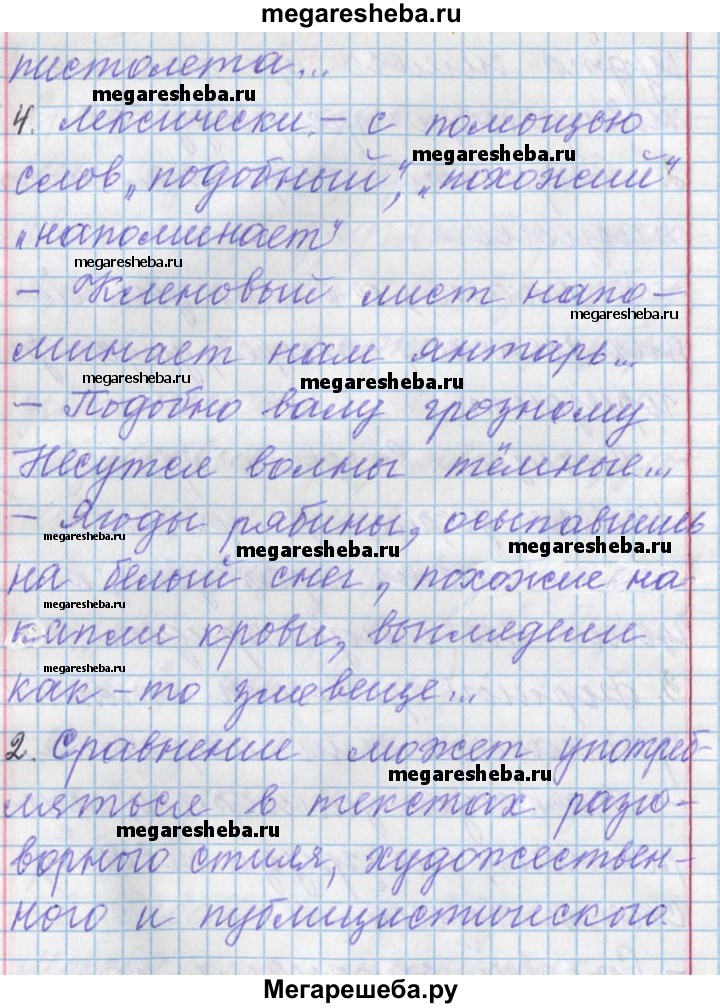 megaresheba.ru
пистолета...
megaresheba.ru
4. Лексически – с помощью
megaresheba.ru
слов „подобный", „похожий"
„напоминает"
megaresheba.ru
– Кленовый лист напо-
megaresheba.ru
минает нам янтарь...
megaresheba.ru
megaresheba.ru
– Подобно валу грозному
Несутся волны тёмные...
– Ягоды рябины, осыпавшись
megaresheba.ru
megaresheba.ru
megaresheba.ru
на белый снег, похожие на
megaresheba.ru
капли крови, выглядели
megaresheba.ru
как-то зловеще...
2. Сравнение может употреб-
megaresheba.ru
ляться в текстах разго-
megaresheba.ru
ворного стиля, художествен-
ного и публицистического.
Мегарешеба.ру